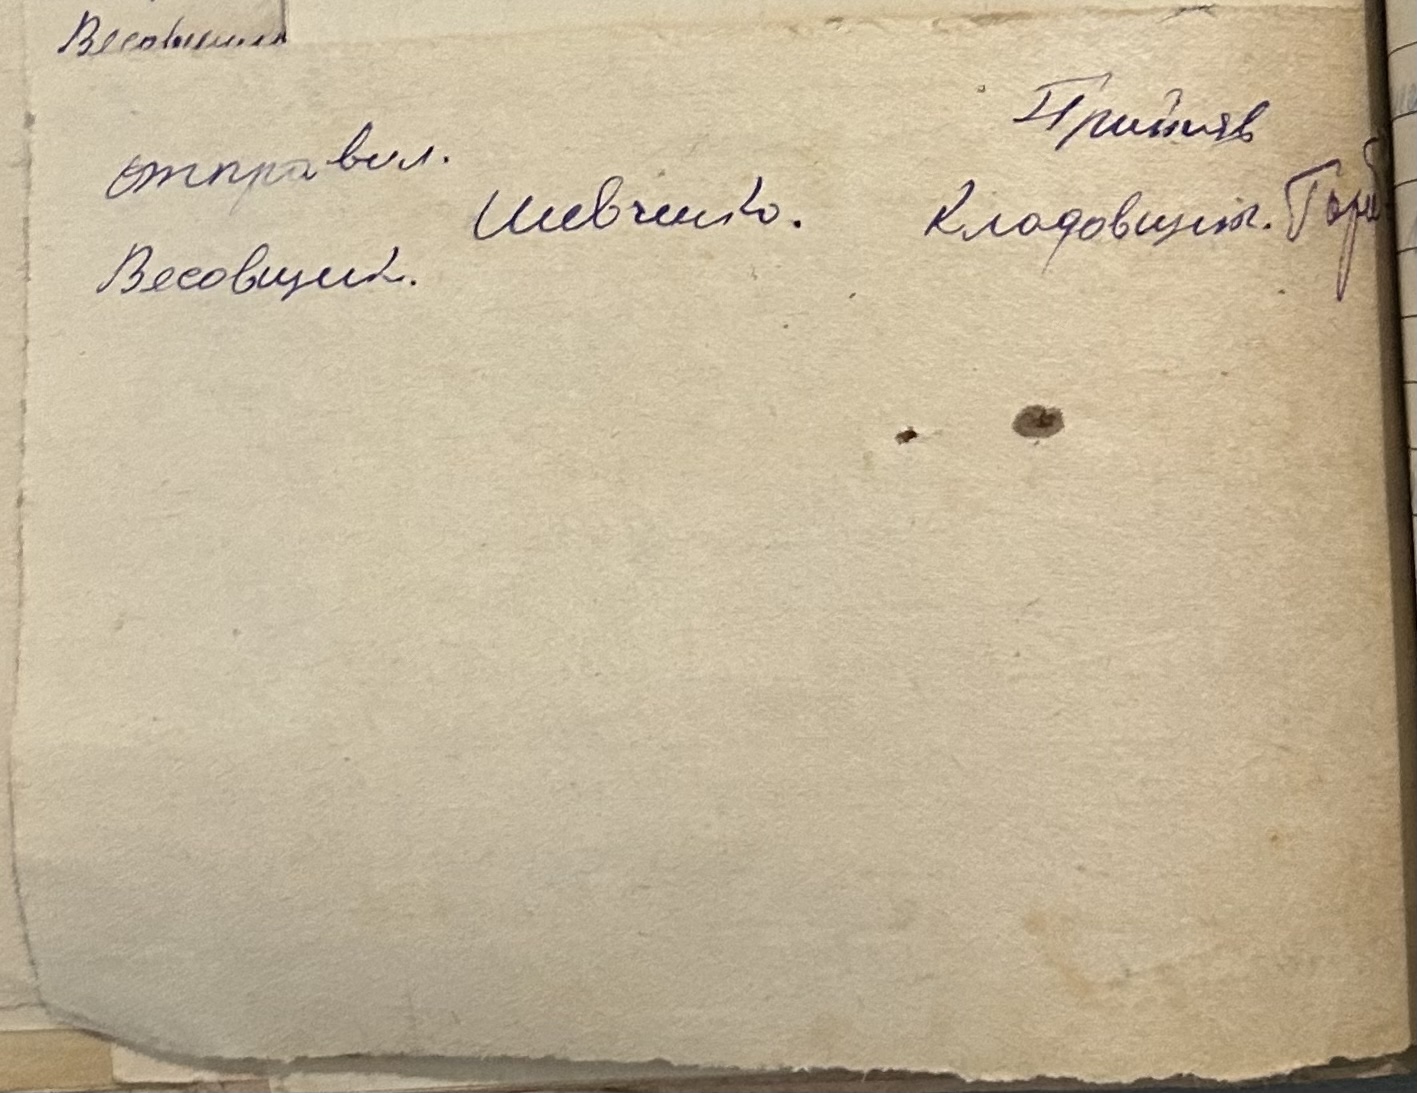 Весовщик
Прийняв
отправил.
Шевченко.
Кладовщик.
Весовщик.